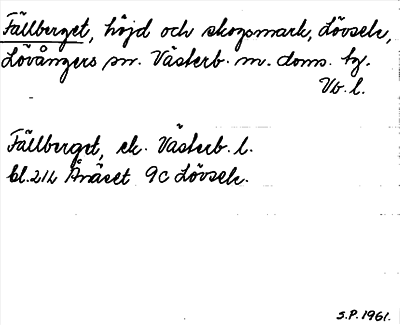 Fällberget, höjd och skogsmark, Lövsele,
Lövångers sn. Västerb. m. doms. hg.
Vb. l.
Fällberget, ek. Västerb. l.
bl. 21L Ånäset 9c Lövsele.
S.P. 1961.